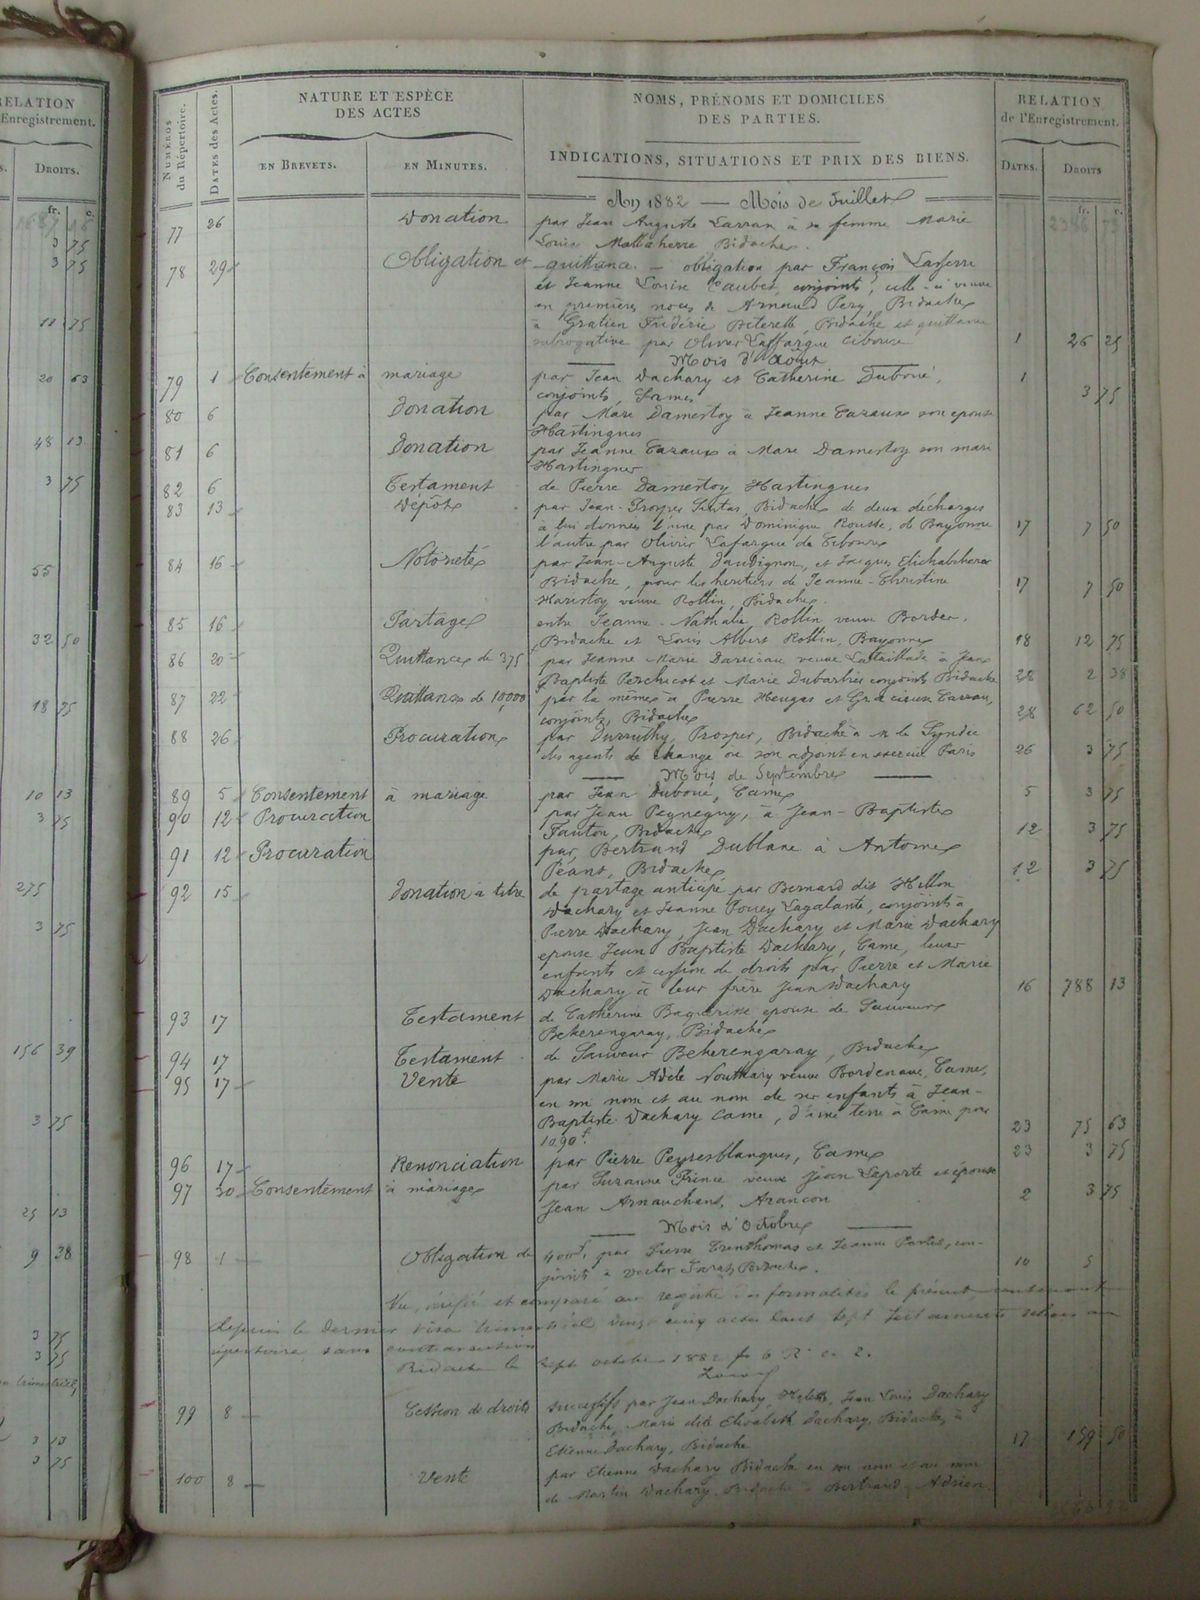 RELATION
Enregistrement.
DROITS.
fr. c.
3 75
3 75
11 75
20 63
48 13
3 75
55
32 50
18 75
10 13
3 75
275
3 75
156 39
3 75
25 13
9 38
3 75
3 75
3 13
3 75
NUMÉROS du Répertoire.
DATES des Actes.
NATURE ET ESPÈCE
DES ACTES
EN BREVETS.
EN MINUTES.
NOMS, PRÉNOMS ET DOMICILES
DES PARTIES.
INDICATIONS, SITUATIONS ET PRIX DES BIENS.
RELATION
de l'Enregistrement.
DATES.
DROITS
fr. c.
An 1882 — Mois de Juillet
77 26 Donation par Jean Auguste Larran à sa femme Marie
Louise Malbaherre Bidache.
78 29 Obligation et quittance. — obligation par François Lasserre
et Jeanne Louise Caubet, conjoints, celle-ci veuve
en premières noces de Arnaud Pery, Bidache
à Gratien Frédéric Biterette, Bidache et quittance
subrogative par Oliver Laffargue Ciboure 1 26 25
Mois d'Août
79 1 Consentement à mariage par Jean Dachary et Catherine Duboué, 1
conjoints, Sames 3 75
80 6 Donation par Marc Damestoy à Jeanne Cazaux son épouse
Hastingues
81 6 Donation par Jeanne Cazaux à Marc Damestoy son mari
Hastingues
82 6 Testament de Pierre Damestoy Hastingues
83 13 Dépôt par Jean-Prosper Bidache de deux décharges
à lui données l'une par Dominique Rousse, de Bayonne 17 7 50
l'autre par Olivier Lafargue de Ciboure
84 16 Notoriété par Jean-Auguste Daudignon, et Jacques Elichabeherer
Bidache, pour les héritiers de Jeanne-Christine 17 7 50
Haristoy veuve Rollin, Bidache.
85 16 Partage entre Jeanne-Nathalie Rollin veuve Bordes.
Bidache et Louis Albert Rollin, Bayonne 18 12 75
86 20 Quittance de 375f par Jeanne Marie Darricau veuve Lataillade à Jean
Baptiste Perchicot et Marie Dubarbier conjoints Bidache 28 2 38
87 22 Quittance de 10,000f par la même à Pierre Heugas et Gracieuse Larrau,
conjoints, Bidache 28 62 50
88 26 Procuration par Durruthy, Prosper, Bidache à M. le Syndic
des agents de change ou son adjoint en exercice Paris 26 3 75
Mois de Septembre
89 5 Consentement à mariage par Jean Duboué, Came 5 3 75
90 12 Procuration par Jean Peyneguy, à Jean-Baptiste
Fauton, Bidache 12 3 75
91 12 Procuration par, Bertrand Dublanc à Antoine
Péant, Bidache 12 3 75
92 15 Donation à titre de partage anticipé par Bernard dit Hillon
Dachary et Jeanne Pouey Lagalante, conjoints à
Pierre Dachary, Jean Dachary et Marie Dachary
épouse Jean Baptiste Dachary, Came, leurs
enfants et cession de droits par Pierre et Marie
Dachary à leur frère Jean Dachary 16 788 13
93 17 Testament de Catherine Baquerisse épouse de Sauveur
Beherengaray, Bidache
94 17 Testament de Sauveur Beherengaray, Bidache
95 17 Vente par Marie Adèle Nouthary veuve Bordenave, Came,
en son nom et au nom de ses enfants à Jean-
Baptiste Dachary Came, d'une terre à Came pour 23 75 63
1090f.
96 17 Renonciation par Pierre Peyresblanques, Came 23 3 75
97 30 Consentement à mariage par Suzanne Prince veuve Jean Laporte et épouse
Jean Arnauchans, Arancou 2 3 75
Mois d'Octobre
98 1 Obligation de 400f, par Pierre Trenthomas et Jeanne Portes, con-
joints à Victor Bidache. 10 5
Vu, vérifié et comparé au registre des formalités le présent contenant
depuis le dernier visa trimestriel, vingt cinq actes dont sept testaments
répertoire, sans contravention
Bidache le sept octobre 1882 fo 6 Ro c. 2.
99 8 Cession de droits successifs par Jean Dachary, Jean Louis Dachary
Bidache, Marie dite Elisabeth Dachary, Bidache, à
Etienne Dachary, Bidache 17 159 50
100 8 Vente par Etienne Dachary Bidache en son nom et au nom
de Martin Dachary Bidache à Bertrand Adrien